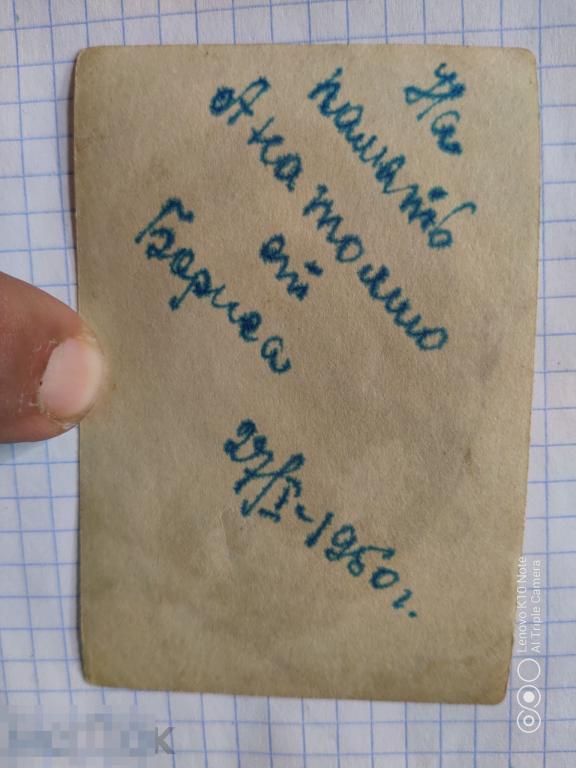 На
память
Анатолию
от
Бориса
27/I-1960г.
Lenovo K10 Note
AI Triple Camera